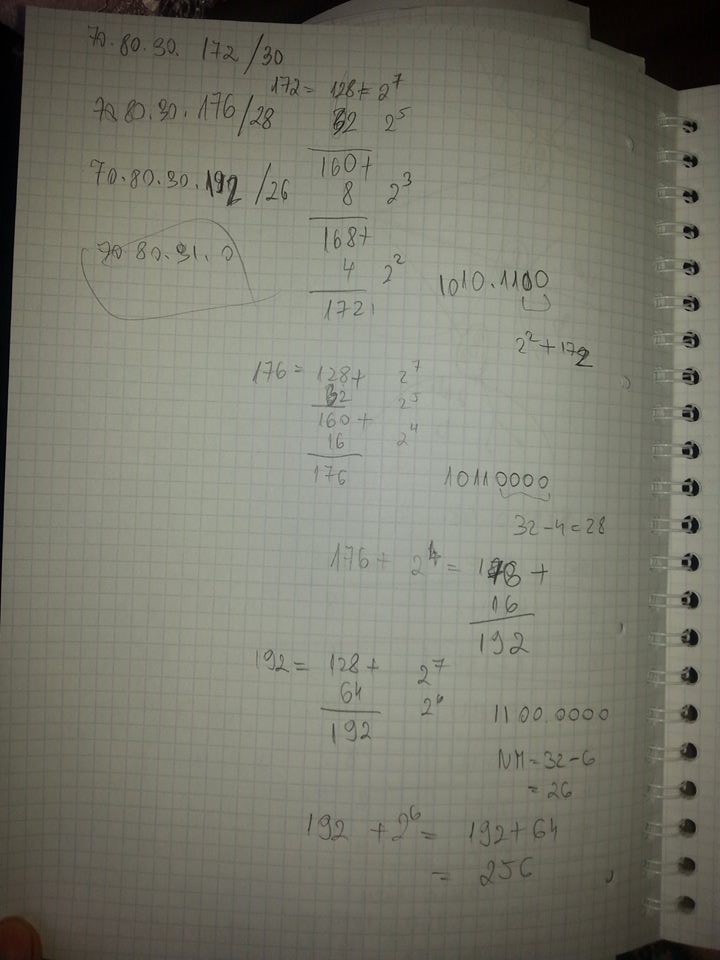 70.80.30. 172 /30
172 = 128 + 2^7
70.80.30.176/28
32 2^5
160+
70.80.30.192 /26
8 2^3
168+
70.80.31.0
4 2^2
172
1010.1100
2^2 + 172
176 = 128+ 2^7
32 2^5
160+
16 2^4
176
10110000
32-4=28
176 + 2^4 =
16
192
192 = 128+ 2^7
64 2^6
192
1100.0000
NM = 32-6
= 26
192 + 2^6 = 192+64
= 256